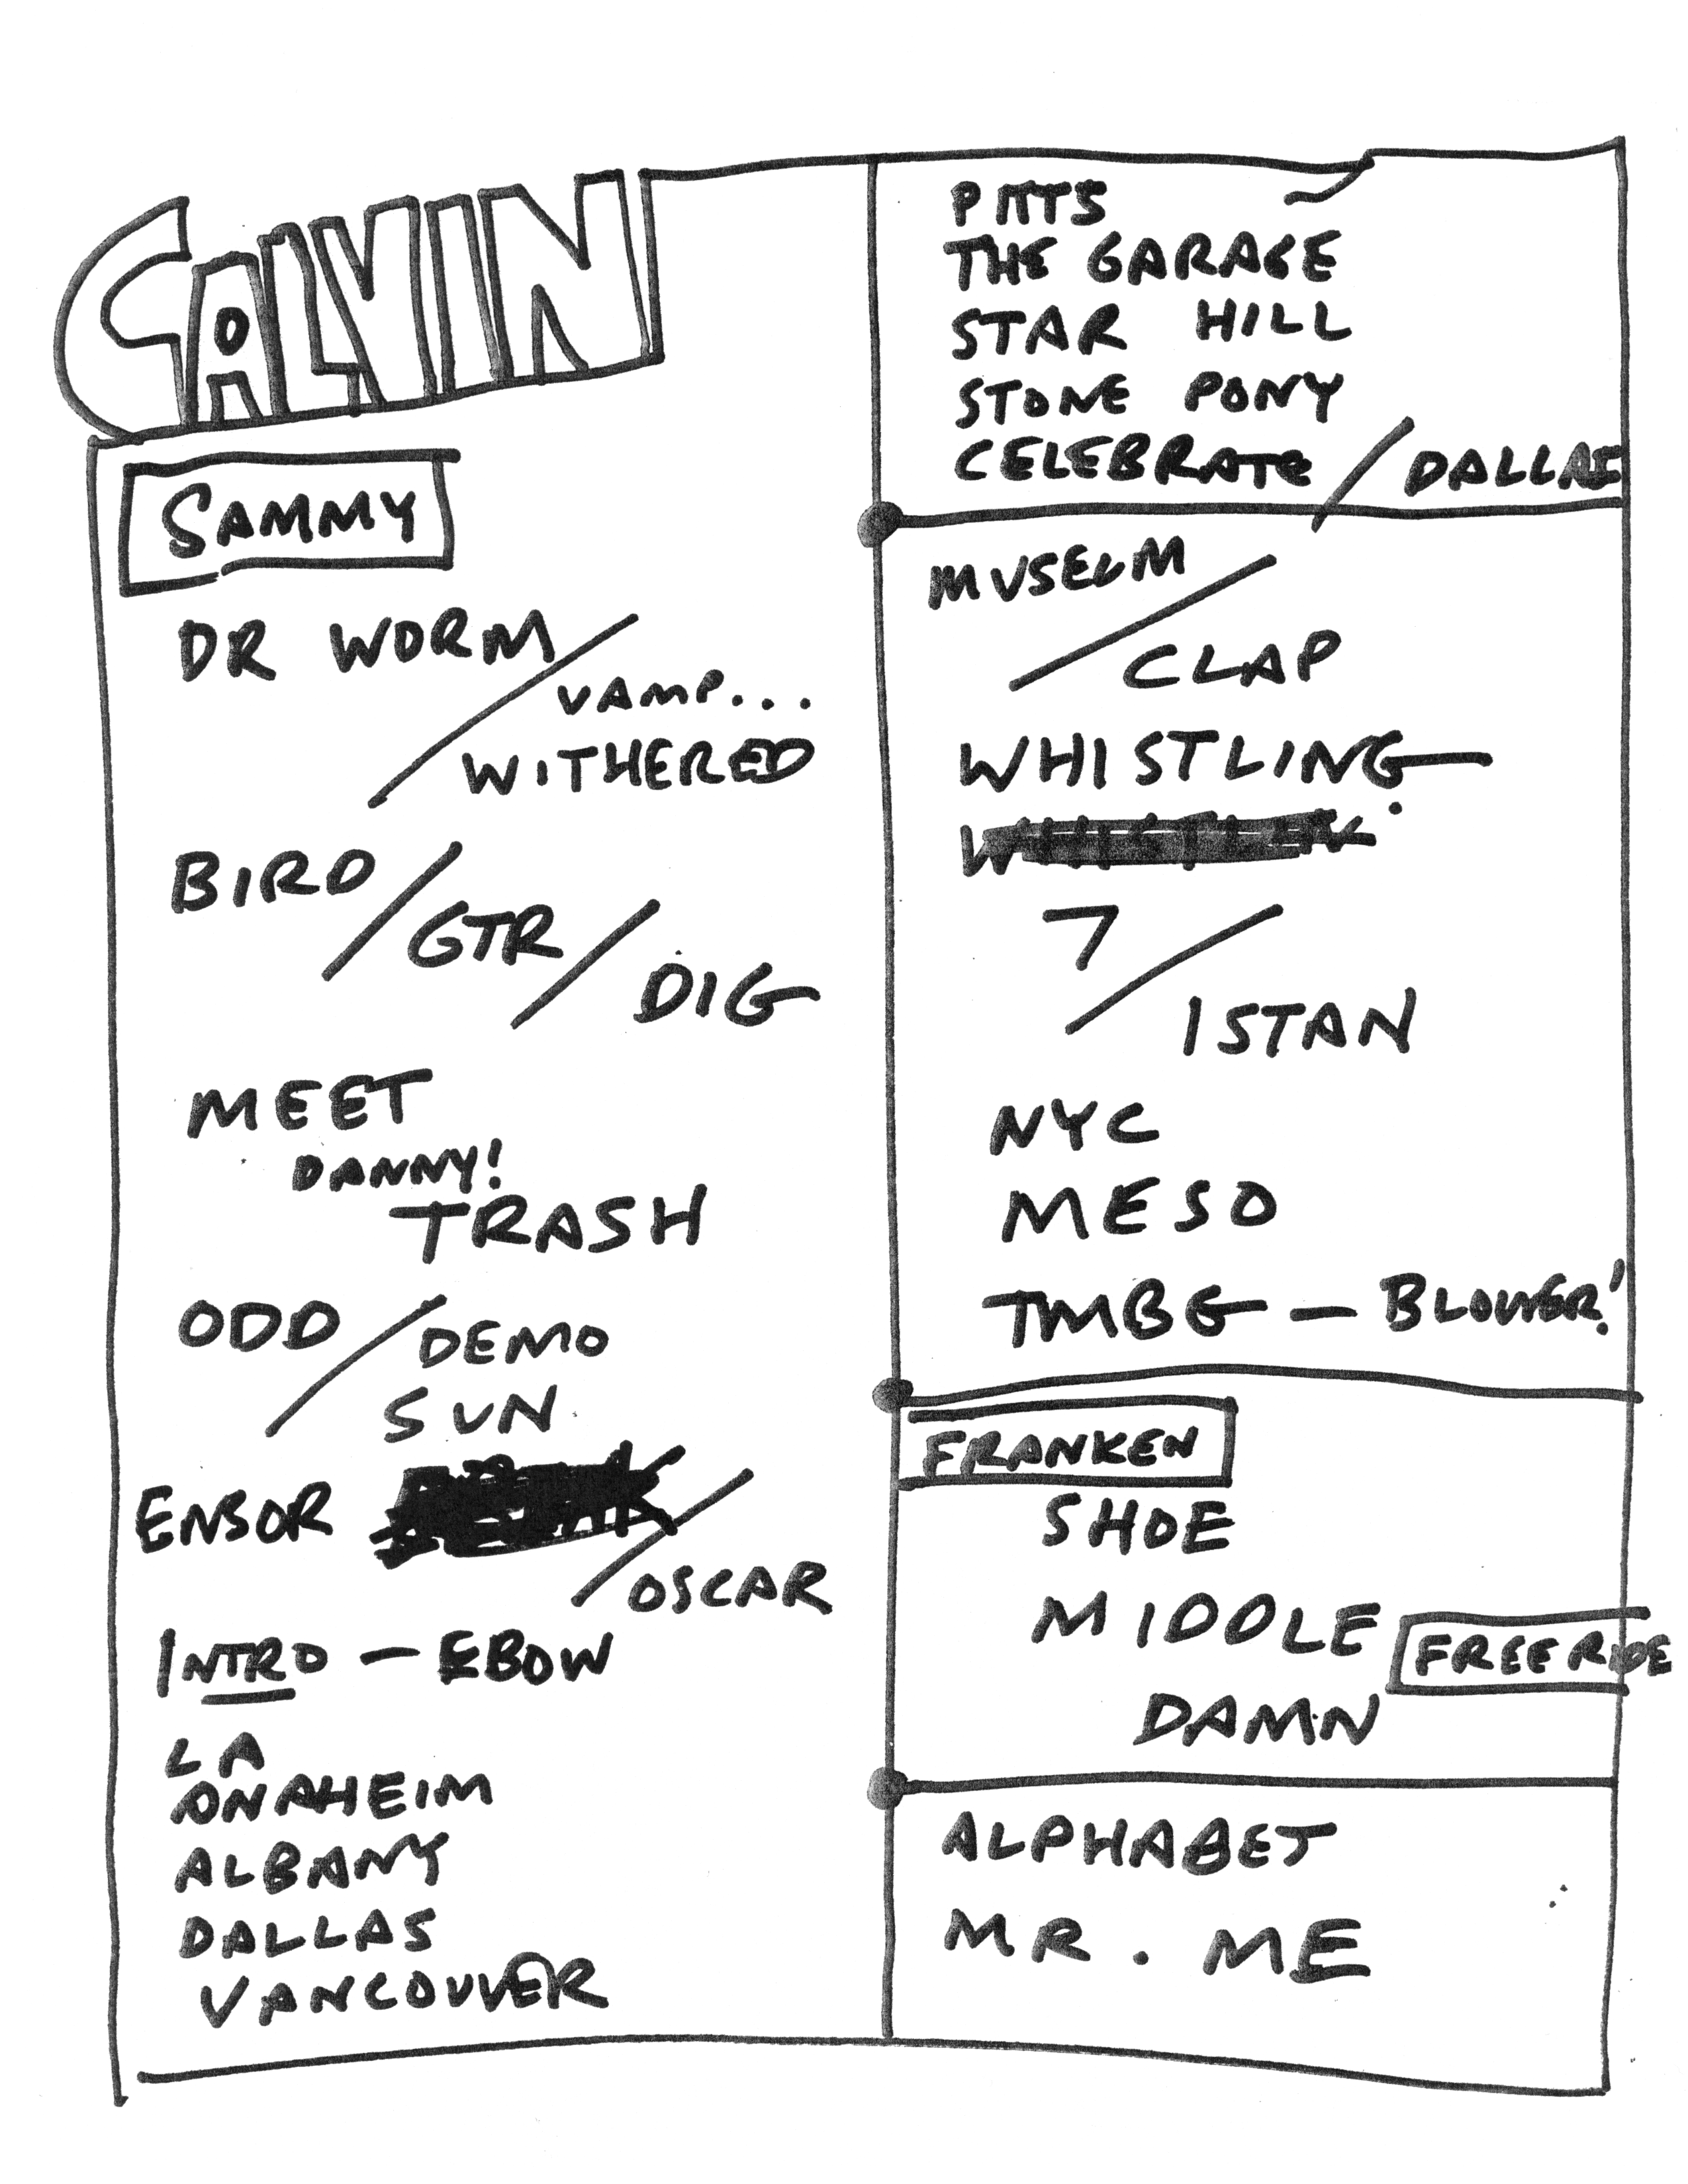 CALVIN
SAMMY
DR WORM /
VAMP...
WITHERED
BIRD / GTR / DIG
MEET
DANNY!
TRASH
ODD / DEMO
SUN
ENSOR / OSCAR
INTRO — EBOW
LA
ANAHEIM
ALBANY
DALLAS
VANCOUVER
PITTS
THE GARAGE
STAR HILL
STONE PONY
CELEBRATE / DALLAS
MUSEUM
/ CLAP
WHISTLING
7
/ ISTAN
NYC
MESO
TMBG — BLOWER!
FRANKEN
SHOE
MIDDLE
FREE RIDE
DAMN
ALPHABET
MR. ME